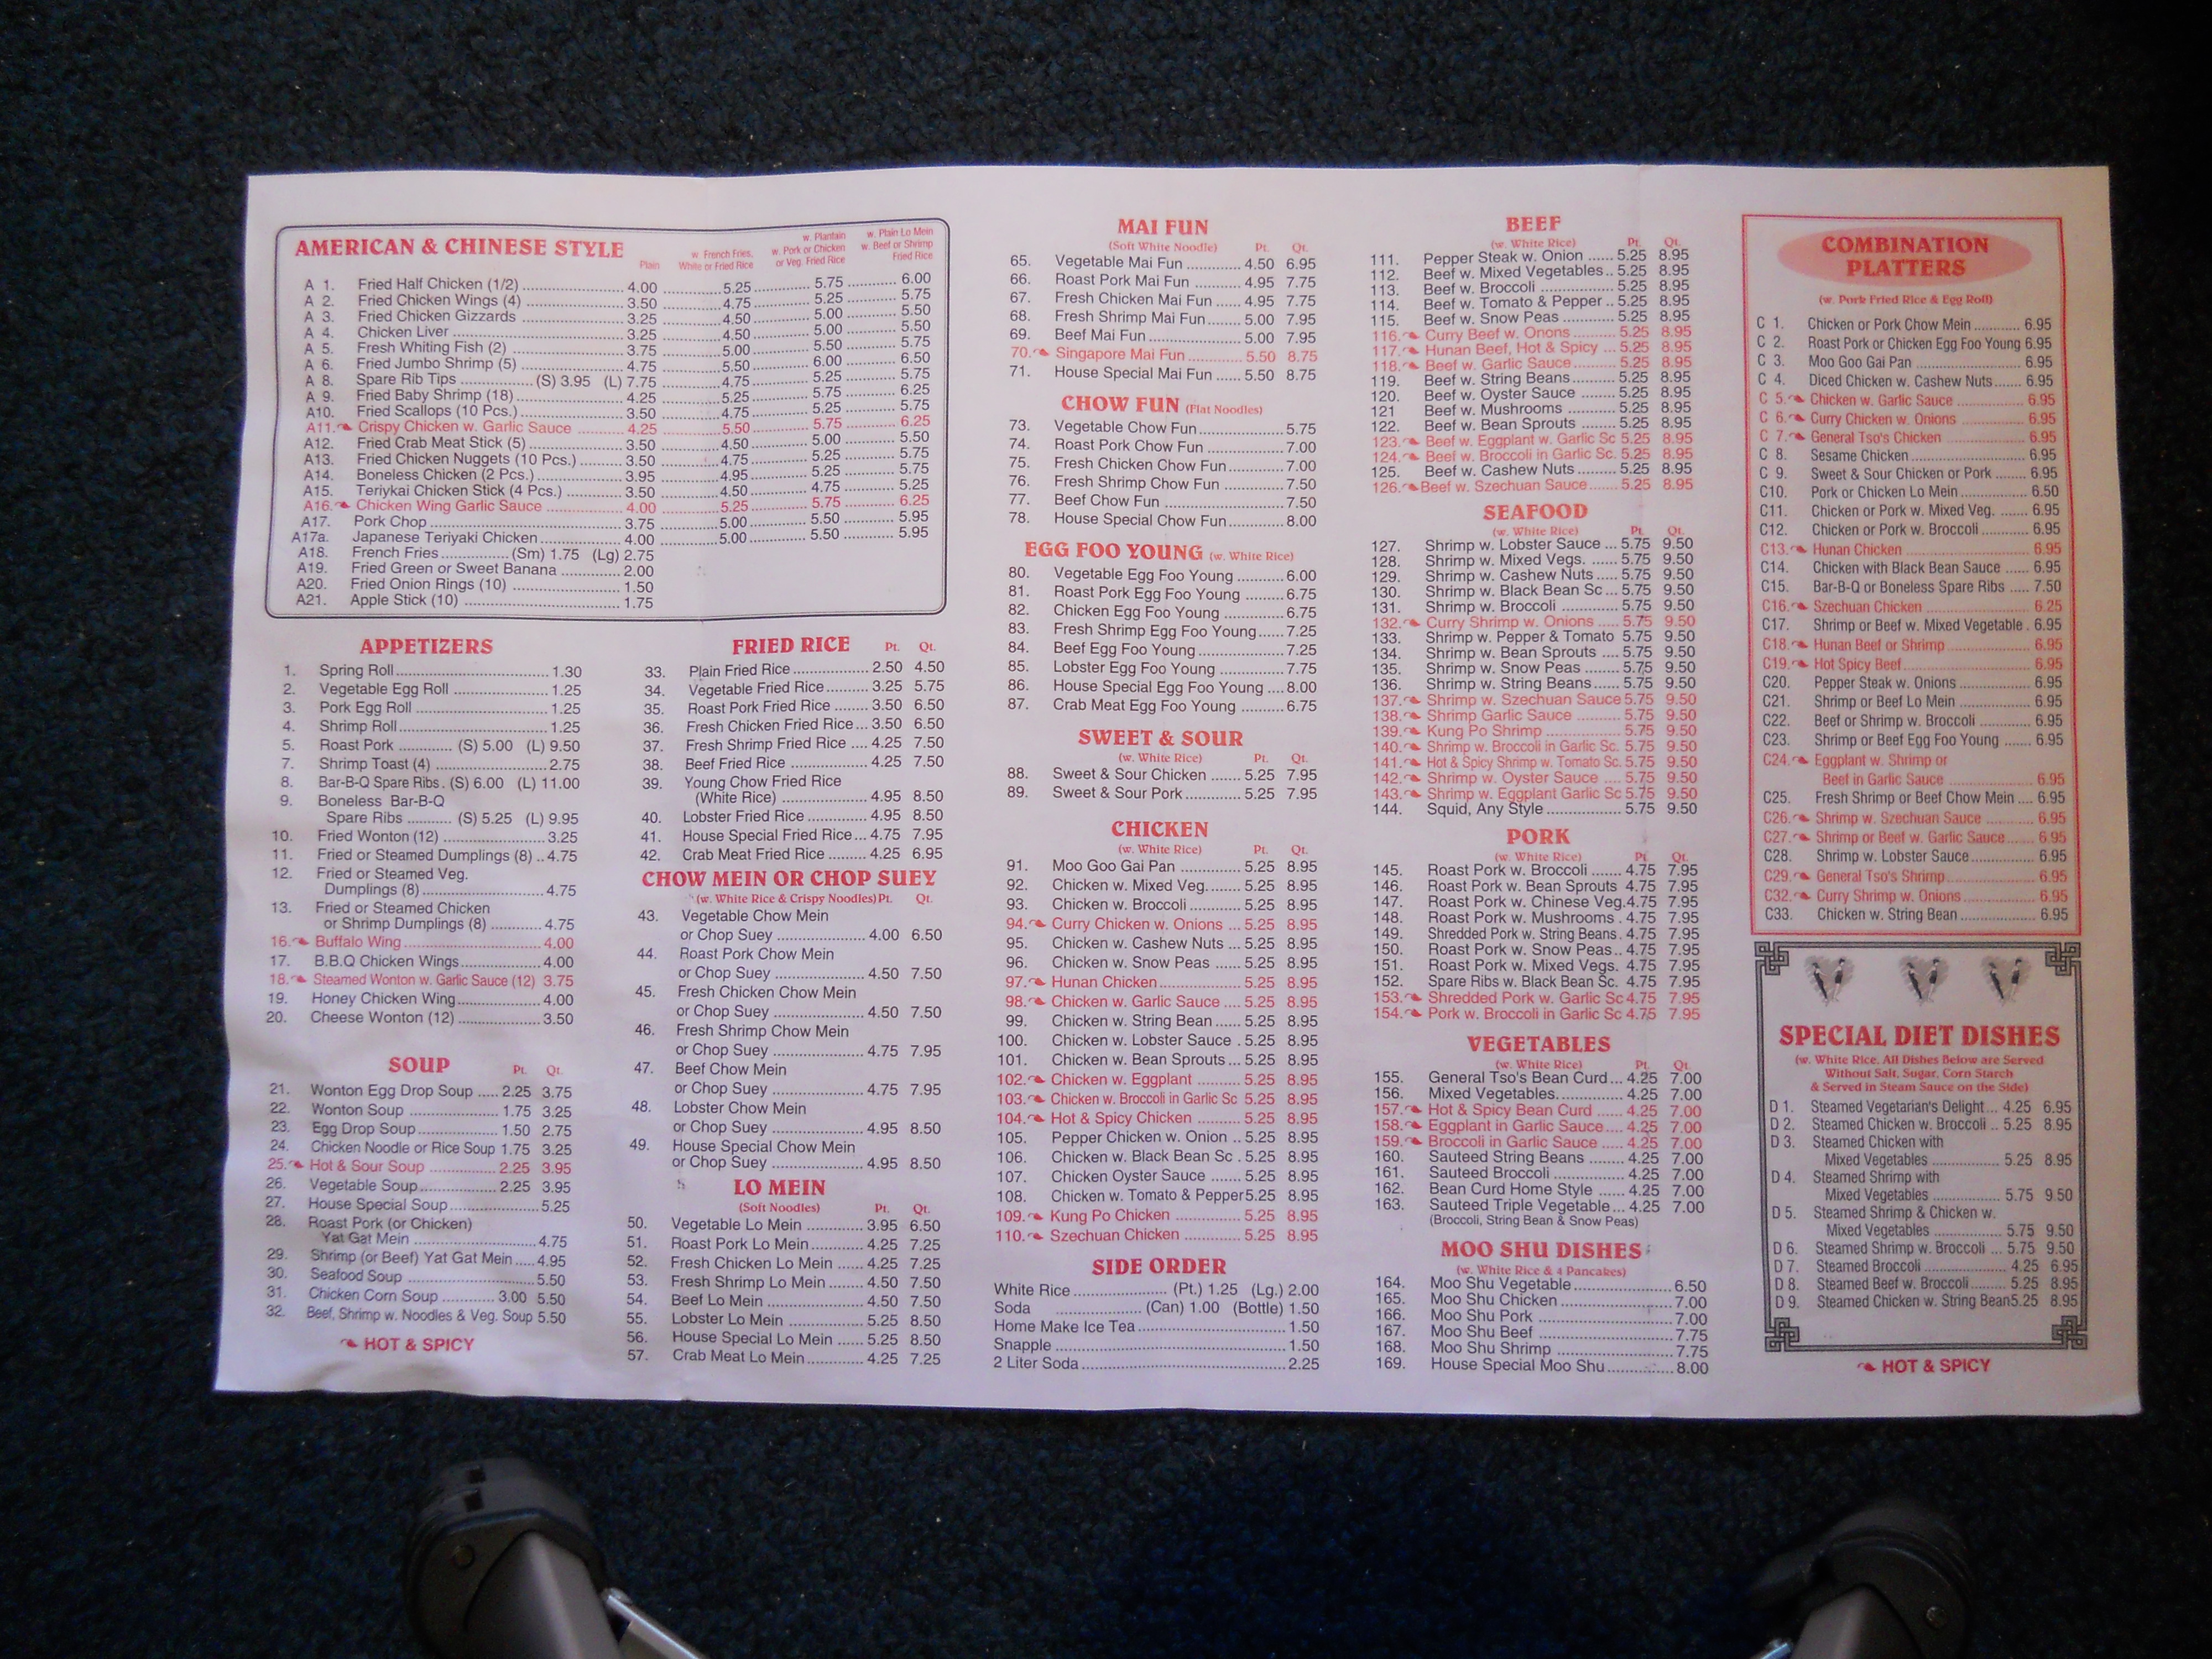 AMERICAN & CHINESE STYLE
Plain
w. French Fries,
White or Fried Rice
w. Plantain
w. Pork or Chicken
or Veg. Fried Rice
w. Plain Lo Mein
w. Beef or Shrimp
Fried Rice
A 1. Fried Half Chicken (1/2) 4.00 5.25 5.75 6.00
A 2. Fried Chicken Wings (4) 3.50 4.75 5.25 5.75
A 3. Fried Chicken Gizzards 3.25 4.50 5.00 5.50
A 4. Chicken Liver 3.25 4.50 5.00 5.50
A 5. Fresh Whiting Fish (2) 3.75 5.00 5.50 5.75
A 6. Fried Jumbo Shrimp (5) 4.75 5.50 6.00 6.50
A 8. Spare Rib Tips (S) 3.95 (L) 7.75 4.75 5.25 5.75
A 9. Fried Baby Shrimp (18) 4.25 5.25 5.75 6.25
A10. Fried Scallops (10 Pcs.) 3.50 4.75 5.25 5.75
A11. Crispy Chicken w. Garlic Sauce 4.25 5.50 5.75 6.25
A12. Fried Crab Meat Stick (5) 3.50 4.50 5.00 5.50
A13. Fried Chicken Nuggets (10 Pcs.) 3.50 4.75 5.25 5.75
A14. Boneless Chicken (2 Pcs.) 3.95 4.95 5.25 5.75
A15. Teriykai Chicken Stick (4 Pcs.) 3.50 4.50 4.75 5.25
A16. Chicken Wing Garlic Sauce 4.00 5.25 5.75 6.25
A17. Pork Chop 3.75 5.00 5.50 5.95
A17a. Japanese Teriyaki Chicken 4.00 5.00 5.50 5.95
A18. French Fries (Sm) 1.75 (Lg) 2.75
A19. Fried Green or Sweet Banana 2.00
A20. Fried Onion Rings (10) 1.50
A21. Apple Stick (10) 1.75
APPETIZERS
1. Spring Roll 1.30
2. Vegetable Egg Roll 1.25
3. Pork Egg Roll 1.25
4. Shrimp Roll 1.25
5. Roast Pork (S) 5.00 (L) 9.50
7. Shrimp Toast (4) 2.75
8. Bar-B-Q Spare Ribs . (S) 6.00 (L) 11.00
9. Boneless Bar-B-Q
Spare Ribs (S) 5.25 (L) 9.95
10. Fried Wonton (12) 3.25
11. Fried or Steamed Dumplings (8) .. 4.75
12. Fried or Steamed Veg.
Dumplings (8) 4.75
13. Fried or Steamed Chicken
or Shrimp Dumplings (8) 4.75
16. Buffalo Wing 4.00
17. B.B.Q Chicken Wings 4.00
18. Steamed Wonton w. Garlic Sauce (12) 3.75
19. Honey Chicken Wing 4.00
20. Cheese Wonton (12) 3.50
SOUP Pt. Qt.
21. Wonton Egg Drop Soup 2.25 3.75
22. Wonton Soup 1.75 3.25
23. Egg Drop Soup 1.50 2.75
24. Chicken Noodle or Rice Soup 1.75 3.25
25. Hot & Sour Soup 2.25 3.95
26. Vegetable Soup 2.25 3.95
27. House Special Soup 5.25
28. Roast Pork (or Chicken)
Yat Gat Mein 4.75
29. Shrimp (or Beef) Yat Gat Mein 4.95
30. Seafood Soup 5.50
31. Chicken Corn Soup 3.00 5.50
32. Beef, Shrimp w. Noodles & Veg. Soup 5.50
HOT & SPICY
FRIED RICE Pt. Qt.
33. Plain Fried Rice 2.50 4.50
34. Vegetable Fried Rice 3.25 5.75
35. Roast Pork Fried Rice 3.50 6.50
36. Fresh Chicken Fried Rice 3.50 6.50
37. Fresh Shrimp Fried Rice 4.25 7.50
38. Beef Fried Rice 4.25 7.50
39. Young Chow Fried Rice
(White Rice) 4.95 8.50
40. Lobster Fried Rice 4.95 8.50
41. House Special Fried Rice 4.75 7.95
42. Crab Meat Fried Rice 4.25 6.95
CHOW MEIN OR CHOP SUEY
(w. White Rice & Crispy Noodles) Pt. Qt.
43. Vegetable Chow Mein
or Chop Suey 4.00 6.50
44. Roast Pork Chow Mein
or Chop Suey 4.50 7.50
45. Fresh Chicken Chow Mein
or Chop Suey 4.50 7.50
46. Fresh Shrimp Chow Mein
or Chop Suey 4.75 7.95
47. Beef Chow Mein
or Chop Suey 4.75 7.95
48. Lobster Chow Mein
or Chop Suey 4.95 8.50
49. House Special Chow Mein
or Chop Suey 4.95 8.50
LO MEIN
(Soft Noodles) Pt. Qt.
50. Vegetable Lo Mein 3.95 6.50
51. Roast Pork Lo Mein 4.25 7.25
52. Fresh Chicken Lo Mein 4.25 7.25
53. Fresh Shrimp Lo Mein 4.50 7.50
54. Beef Lo Mein 4.50 7.50
55. Lobster Lo Mein 5.25 8.50
56. House Special Lo Mein 5.25 8.50
57. Crab Meat Lo Mein 4.25 7.25
MAI FUN
(Soft White Noodle) Pt. Qt.
65. Vegetable Mai Fun 4.50 6.95
66. Roast Pork Mai Fun 4.95 7.75
67. Fresh Chicken Mai Fun 4.95 7.75
68. Fresh Shrimp Mai Fun 5.00 7.95
69. Beef Mai Fun 5.00 7.95
70. Singapore Mai Fun 5.50 8.75
71. House Special Mai Fun 5.50 8.75
CHOW FUN (Flat Noodles)
73. Vegetable Chow Fun 5.75
74. Roast Pork Chow Fun 7.00
75. Fresh Chicken Chow Fun 7.00
76. Fresh Shrimp Chow Fun 7.50
77. Beef Chow Fun 7.50
78. House Special Chow Fun 8.00
EGG FOO YOUNG (w. White Rice)
80. Vegetable Egg Foo Young 6.00
81. Roast Pork Egg Foo Young 6.75
82. Chicken Egg Foo Young 6.75
83. Fresh Shrimp Egg Foo Young 7.25
84. Beef Egg Foo Young 7.25
85. Lobster Egg Foo Young 7.75
86. House Special Egg Foo Young 8.00
87. Crab Meat Egg Foo Young 6.75
SWEET & SOUR
(w. White Rice) Pt. Qt.
88. Sweet & Sour Chicken 5.25 7.95
89. Sweet & Sour Pork 5.25 7.95
CHICKEN
(w. White Rice) Pt. Qt.
91. Moo Goo Gai Pan 5.25 8.95
92. Chicken w. Mixed Veg. 5.25 8.95
93. Chicken w. Broccoli 5.25 8.95
94. Curry Chicken w. Onions 5.25 8.95
95. Chicken w. Cashew Nuts 5.25 8.95
96. Chicken w. Snow Peas 5.25 8.95
97. Hunan Chicken 5.25 8.95
98. Chicken w. Garlic Sauce 5.25 8.95
99. Chicken w. String Bean 5.25 8.95
100. Chicken w. Lobster Sauce 5.25 8.95
101. Chicken w. Bean Sprouts 5.25 8.95
102. Chicken w. Eggplant 5.25 8.95
103. Chicken w. Broccoli in Garlic Sc 5.25 8.95
104. Hot & Spicy Chicken 5.25 8.95
105. Pepper Chicken w. Onion 5.25 8.95
106. Chicken w. Black Bean Sc 5.25 8.95
107. Chicken Oyster Sauce 5.25 8.95
108. Chicken w. Tomato & Pepper 5.25 8.95
109. Kung Po Chicken 5.25 8.95
110. Szechuan Chicken 5.25 8.95
SIDE ORDER
White Rice (Pt.) 1.25 (Lg.) 2.00
Soda (Can) 1.00 (Bottle) 1.50
Home Make Ice Tea 1.50
Snapple 1.50
2 Liter Soda 2.25
BEEF
(w. White Rice) Pt. Qt.
111. Pepper Steak w. Onion 5.25 8.95
112. Beef w. Mixed Vegetables 5.25 8.95
113. Beef w. Broccoli 5.25 8.95
114. Beef w. Tomato & Pepper 5.25 8.95
115. Beef w. Snow Peas 5.25 8.95
116. Curry Beef w. Onons 5.25 8.95
117. Hunan Beef, Hot & Spicy 5.25 8.95
118. Beef w. Garlic Sauce 5.25 8.95
119. Beef w. String Beans 5.25 8.95
120. Beef w. Oyster Sauce 5.25 8.95
121 Beef w. Mushrooms 5.25 8.95
122. Beef w. Bean Sprouts 5.25 8.95
123. Beef w. Eggplant w. Garlic Sc 5.25 8.95
124. Beef w. Broccoli in Garlic Sc. 5.25 8.95
125. Beef w. Cashew Nuts 5.25 8.95
126. Beef w. Szechuan Sauce 5.25 8.95
SEAFOOD
(w. White Rice) Pt. Qt.
127. Shrimp w. Lobster Sauce 5.75 9.50
128. Shrimp w. Mixed Vegs. 5.75 9.50
129. Shrimp w. Cashew Nuts 5.75 9.50
130. Shrimp w. Black Bean Sc 5.75 9.50
131. Shrimp w. Broccoli 5.75 9.50
132. Curry Shrimp w. Onions 5.75 9.50
133. Shrimp w. Pepper & Tomato 5.75 9.50
134. Shrimp w. Bean Sprouts 5.75 9.50
135. Shrimp w. Snow Peas 5.75 9.50
136. Shrimp w. String Beans 5.75 9.50
137. Shrimp w. Szechuan Sauce 5.75 9.50
138. Shrimp Garlic Sauce 5.75 9.50
139. Kung Po Shrimp 5.75 9.50
140. Shrimp w. Broccoli in Garlic Sc. 5.75 9.50
141. Hot & Spicy Shrimp w. Tomato Sc. 5.75 9.50
142. Shrimp w. Oyster Sauce 5.75 9.50
143. Shrimp w. Eggplant Garlic Sc 5.75 9.50
144. Squid, Any Style 5.75 9.50
PORK
(w. White Rice) Pt. Qt.
145. Roast Pork w. Broccoli 4.75 7.95
146. Roast Pork w. Bean Sprouts 4.75 7.95
147. Roast Pork w. Chinese Veg. 4.75 7.95
148. Roast Pork w. Mushrooms 4.75 7.95
149. Shredded Pork w. String Beans 4.75 7.95
150. Roast Pork w. Snow Peas 4.75 7.95
151. Roast Pork w. Mixed Vegs. 4.75 7.95
152. Spare Ribs w. Black Bean Sc. 4.75 7.95
153. Shredded Pork w. Garlic Sc 4.75 7.95
154. Pork w. Broccoli in Garlic Sc 4.75 7.95
VEGETABLES
(w. White Rice) Pt. Qt.
155. General Tso's Bean Curd 4.25 7.00
156. Mixed Vegetables 4.25 7.00
157. Hot & Spicy Bean Curd 4.25 7.00
158. Eggplant in Garlic Sauce 4.25 7.00
159. Broccoli in Garlic Sauce 4.25 7.00
160. Sauteed String Beans 4.25 7.00
161. Sauteed Broccoli 4.25 7.00
162. Bean Curd Home Style 4.25 7.00
163. Sauteed Triple Vegetable 4.25 7.00
(Broccoli, String Bean & Snow Peas)
MOO SHU DISHES
(w. White Rice & 4 Pancakes)
164. Moo Shu Vegetable 6.50
165. Moo Shu Chicken 7.00
166. Moo Shu Pork 7.00
167. Moo Shu Beef 7.75
168. Moo Shu Shrimp 7.75
169. House Special Moo Shu 8.00
COMBINATION
PLATTERS
(w. Pork Fried Rice & Egg Roll)
C 1. Chicken or Pork Chow Mein 6.95
C 2. Roast Pork or Chicken Egg Foo Young 6.95
C 3. Moo Goo Gai Pan 6.95
C 4. Diced Chicken w. Cashew Nuts 6.95
C 5. Chicken w. Garlic Sauce 6.95
C 6. Curry Chicken w. Onions 6.95
C 7. General Tso's Chicken 6.95
C 8. Sesame Chicken 6.95
C 9. Sweet & Sour Chicken or Pork 6.95
C10. Pork or Chicken Lo Mein 6.50
C11. Chicken or Pork w. Mixed Veg. 6.95
C12. Chicken or Pork w. Broccoli 6.95
C13. Hunan Chicken 6.95
C14. Chicken with Black Bean Sauce 6.95
C15. Bar-B-Q or Boneless Spare Ribs 7.50
C16. Szechuan Chicken 6.25
C17. Shrimp or Beef w. Mixed Vegetable 6.95
C18. Hunan Beef or Shrimp 6.95
C19. Hot Spicy Beef 6.95
C20. Pepper Steak w. Onions 6.95
C21. Shrimp or Beef Lo Mein 6.95
C22. Beef or Shrimp w. Broccoli 6.95
C23. Shrimp or Beef Egg Foo Young 6.95
C24. Eggplant w. Shrimp or
Beef in Garlic Sauce 6.95
C25. Fresh Shrimp or Beef Chow Mein 6.95
C26. Shrimp w. Szechuan Sauce 6.95
C27. Shrimp or Beef w. Garlic Sauce 6.95
C28. Shrimp w. Lobster Sauce 6.95
C29. General Tso's Shrimp 6.95
C32. Curry Shrimp w. Onions 6.95
C33. Chicken w. String Bean 6.95
SPECIAL DIET DISHES
(w. White Rice. All Dishes Below are Served
Without Salt, Sugar, Corn Starch
& Served in Steam Sauce on the Side)
D 1. Steamed Vegetarian's Delight 4.25 6.95
D 2. Steamed Chicken w. Broccoli 5.25 8.95
D 3. Steamed Chicken with
Mixed Vegetables 5.25 8.95
D 4. Steamed Shrimp with
Mixed Vegetables 5.75 9.50
D 5. Steamed Shrimp & Chicken w.
Mixed Vegetables 5.75 9.50
D 6. Steamed Shrimp w. Broccoli 5.75 9.50
D 7. Steamed Broccoli 4.25 6.95
D 8. Steamed Beef w. Broccoli 5.25 8.95
D 9. Steamed Chicken w. String Bean 5.25 8.95
HOT & SPICY